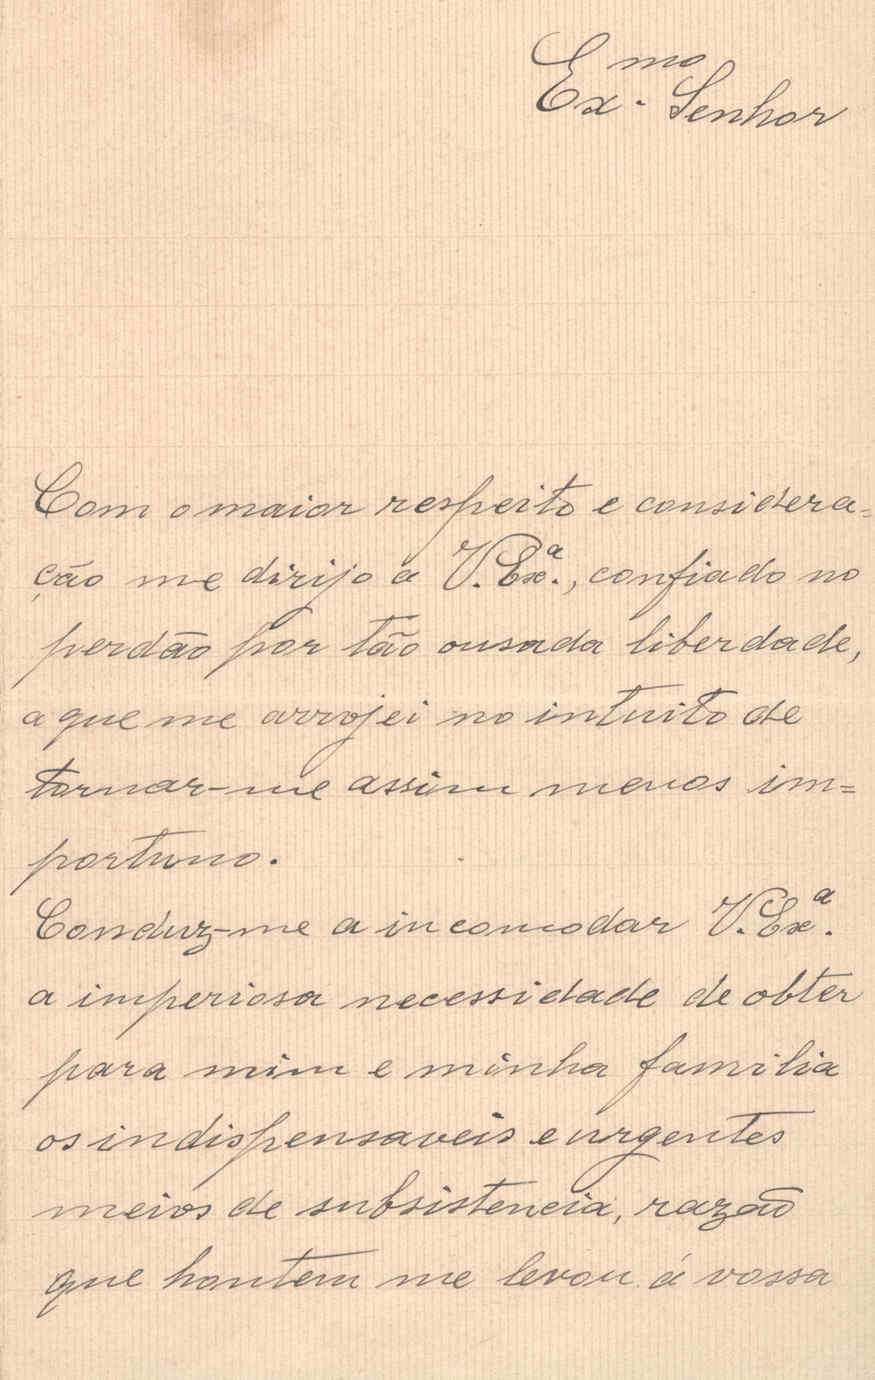 Ex.mo Senhor
Com o maior respeito e considera=
ção me dirijo a V. Ex.a, confiado no
perdão por tão ousada liberdade,
a que me arrojei no intuito de
tornar-me assim menos im=
portuno.
Conduz-me a incomodar V. Ex.a
a imperiosa necessidade de obter
para mim e minha familia
os indispensaveis e urgentes
meios de subsistencia, razão
que hontem me levou á vossa